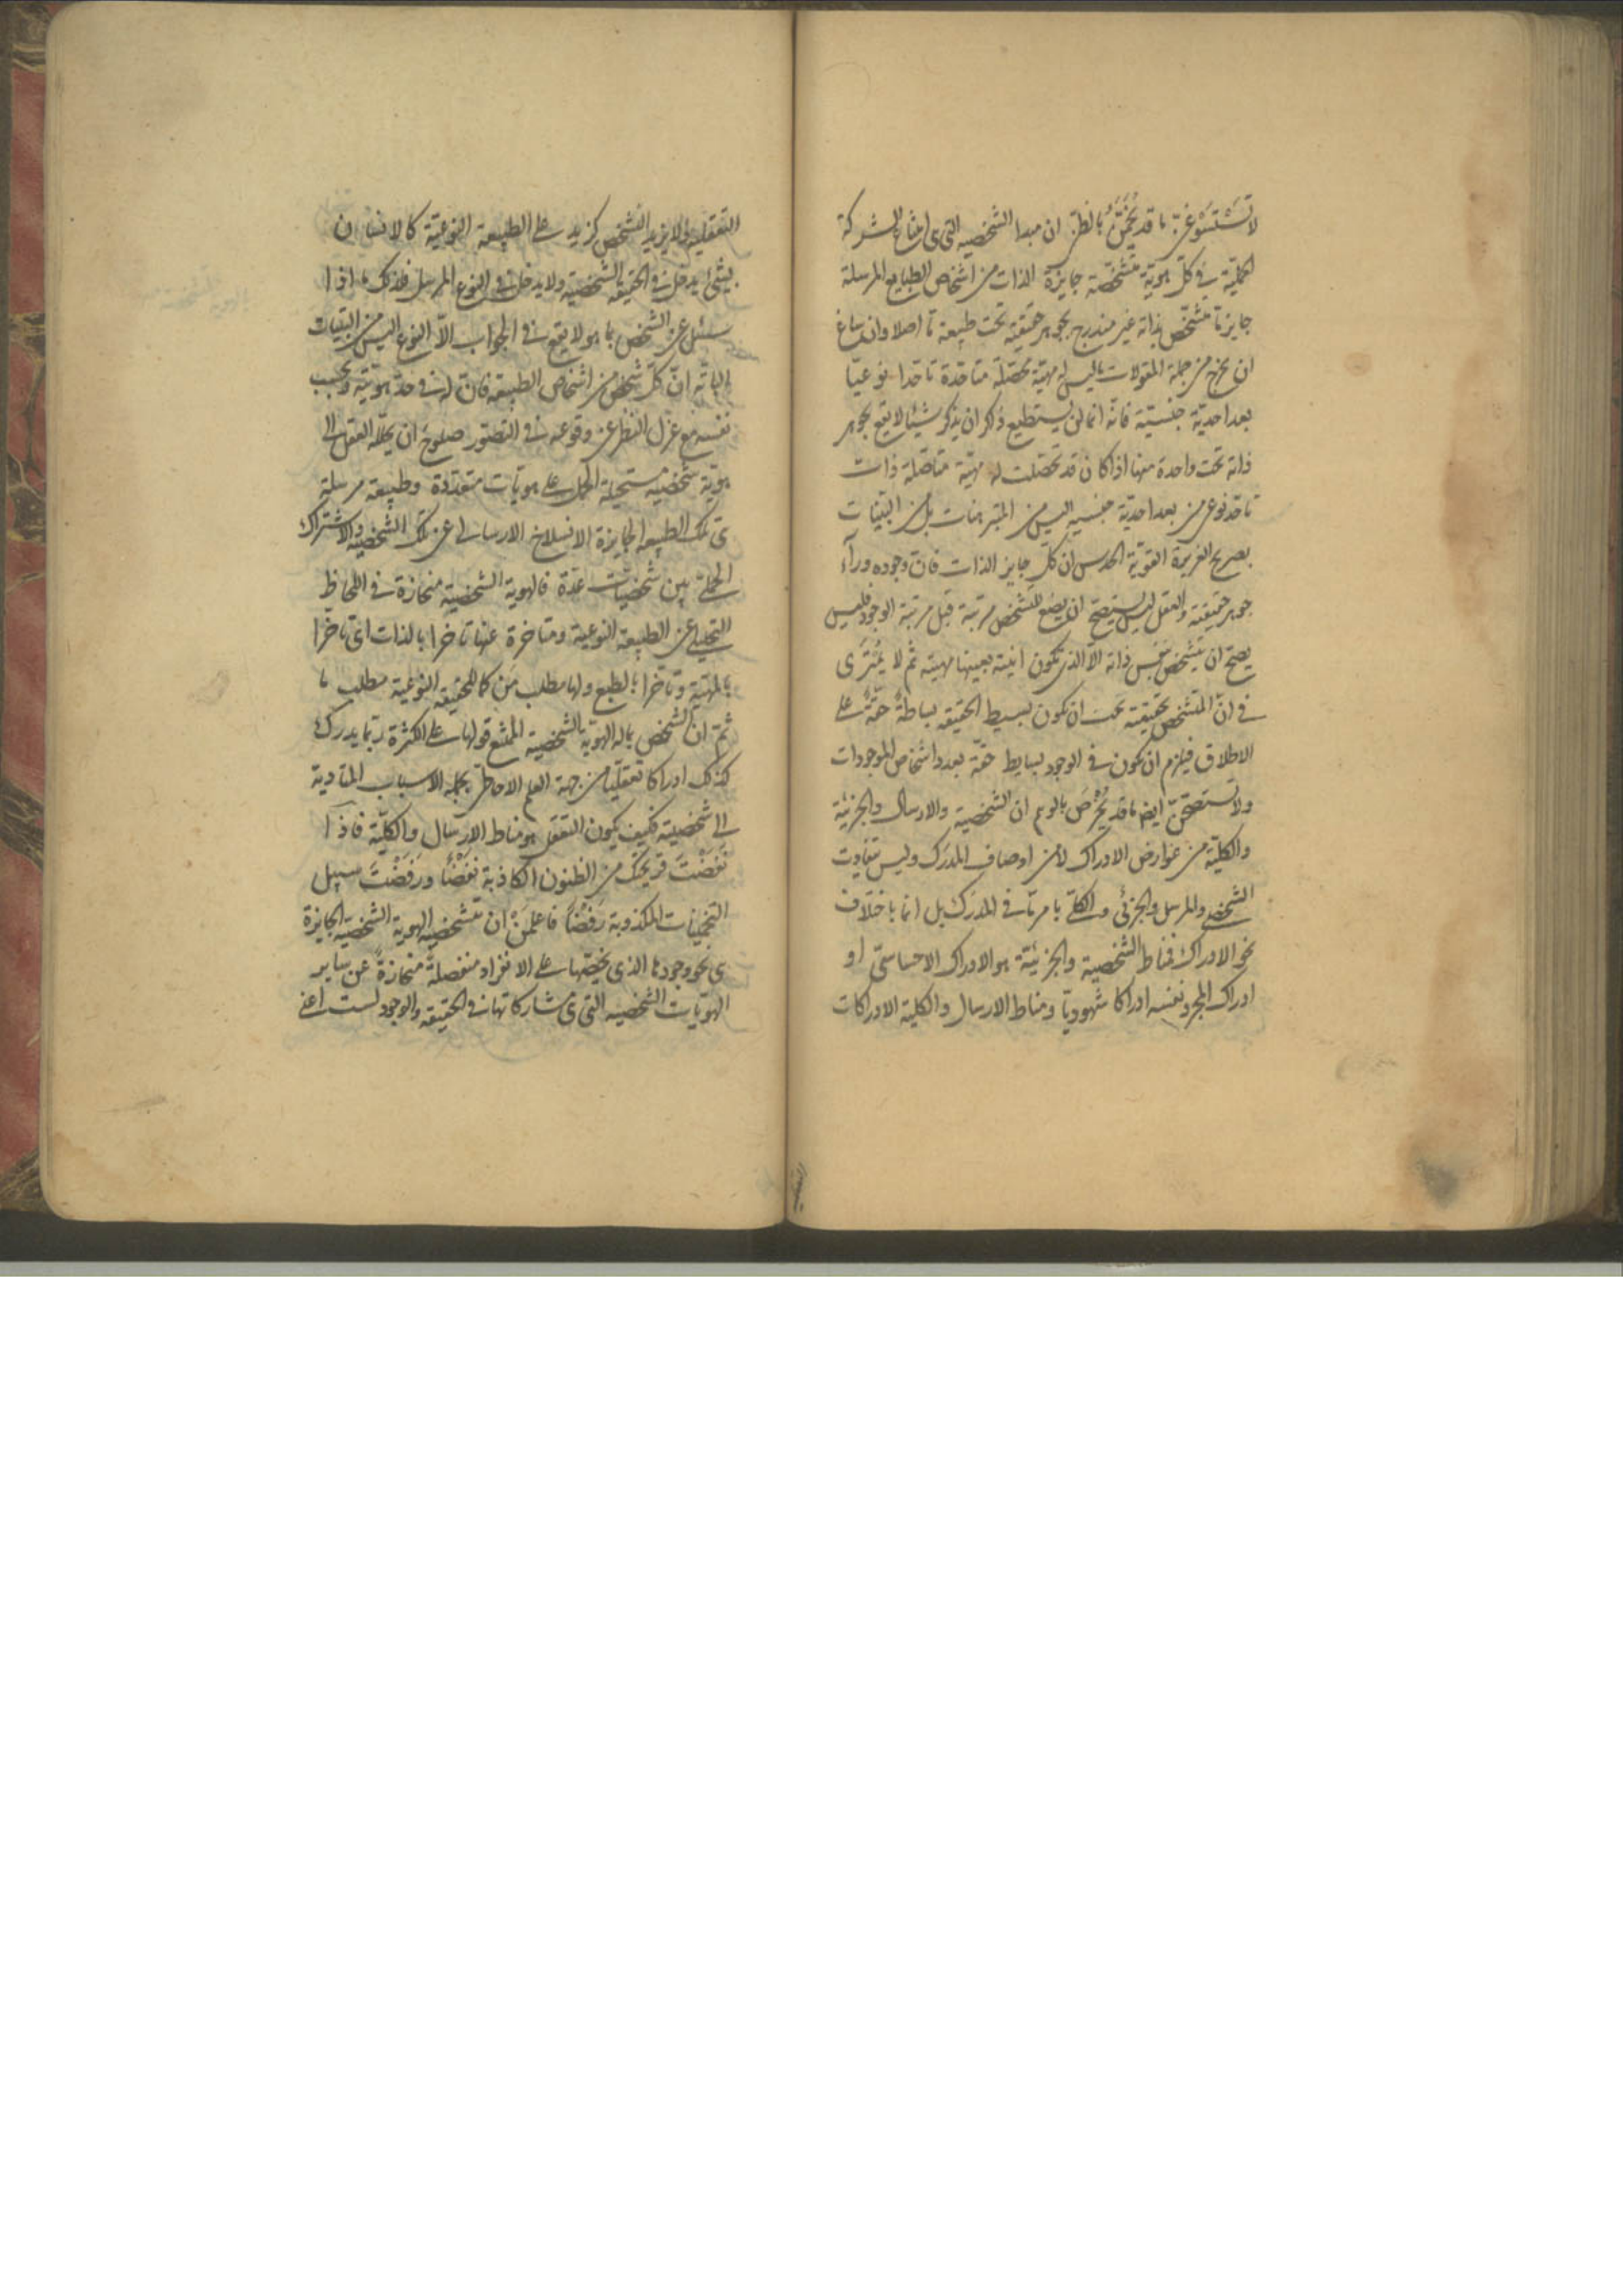 لا تستسوغنّ ما قد يخمّن بالظن ان مبدا الشخصية التي هي امتناع الشركة
الحملية في كل هوية متشخصة جايزة الذات من اشخاص الطبايع المرسلة
جايز ما متشخص بذاته غير مندرج بجوهر حقيقته تحت طبيعة ما اصلا وان ساغ
ان يخرج من جملة المقولات ما ليس له مهية محصلة متاحدة تاحدا نوعيا
بعد احدية جنسية فانه انما لن يستطيع ذاكر ان يذكر شيئا لا يقع بجوهر
ذاته تحت واحدة منها اذا كان قد تحصلت له مهية متاصلة ذات
تاحد نوعي من بعد احدية جنسيه اليس من المتبرهنات بل من البينات
بصريح الغريزة القوية الحدس ان كل جايز الذات فان وجوده وراء
جوهر حقيقته والعقل ليس يستصح ان يضع للتشخص مرتبة قبل مرتبة الوجود فليس
يصح ان يتشخص بنفس ذاته الا الذي تكون انيته بعينها مهيته ثم لا يمترى
في ان المتشخص بحقيقته يجب ان يكون بسيط الحقيقه بساطة حقة على
الاطلاق فيلزم ان يكون في الوجود بسايط حقة بعدد اشخاص الموجودات
ولا تستصحنّ ايضا ما قد يخرص بالوهم ان الشخصية والارسال والجزئية
والكلية من عوارض الادراك لا من اوصاف المدرك وليس تفاوت
الشخصي والمرسل والجزئي والكلي بامر ما في المدرك بل انما باختلاف
نحو الادراك فمناط الشخصية والجزئية هو الادراك الاحساسي او
ادراك المجرد نفسه ادراكا شهوديا ومناط الارسال والكلية الادراكات
التعقلية
التعقليه ولا يزيد الشخص كزيد على الطبيعه النوعية كالانسان
بشئ يدخل في الحقيقه الشخصية ولا يدخل في النوع المرسل فلذلك ما اذا
سئل عن الشخص بما هو لا يقع في الجواب الا النوع اليس من البينات
الباته ان كل شخص من اشخاص الطبيعه فان له في حد هويته وبحسب
نفسه مع عزل النظر عن وقوعه في التصور صلوح ان يحلله العقل الى
هوية شخصية مستحيلة الحمل على هويات متعددة وطبيعه مرسلة
هي تلك الطبيعه الجايزة الانسلاخ الارسالي عن تلك الشخصيه والاشتراك
الحملي بين شخصيات عدة فالهوية الشخصية منحازة في اللحاظ
التحليلي عن الطبيعه النوعية ومتاخرة عنها تاخرا بالذات اي تاخرا
بالمهية وتاخرا بالطبع ولها مطلب من كما للحقيقه النوعية مطلب ما
ثم ان الشخص بما له الهوية الشخصية الممتنع قولها على الكثرة ربما يدرك
كذلك ادراكا تعقليا من جهة العلم الاحاطي بجملة الاسباب المتادية
الى شخصيته فكيف يكون التعقل هو مناط الارسال والكلية فاذا
نفضت قريحتك من الظنون الكاذبة نفضا ورفضت سبيل
التخمينات المكذوبة رفضا فاعلمن ان تشخص الهوية الشخصية الجايزة
هي نحو وجودها الذي يخصها على الانفراد منفصلة منحازة عن ساير
الهويات الشخصيه التي هي مشاركاتها في الحقيقه والوجود لست اعني